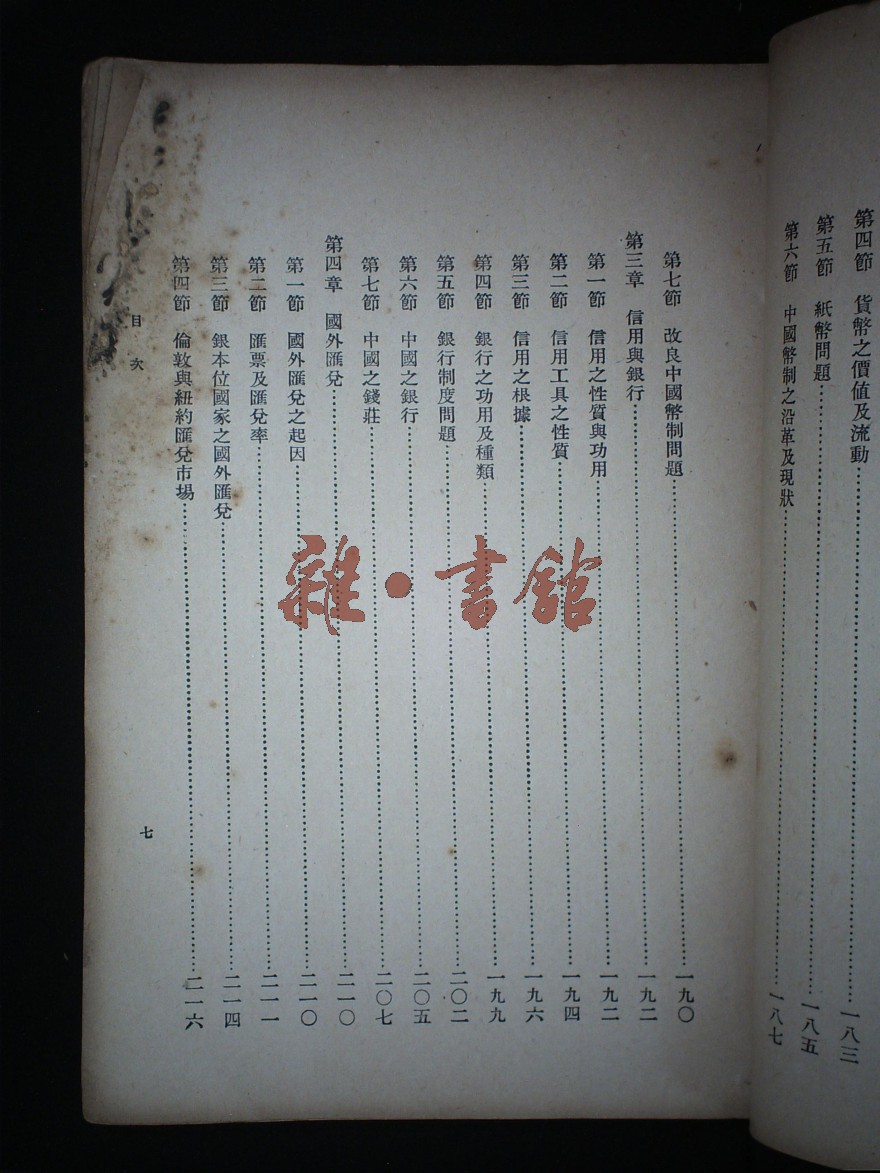 第四節　貨幣之價值及流動……一八三
第五節　紙幣問題……一八五
第六節　中國幣制之沿革及現狀……一八七
第七節　改良中國幣制問題……一九〇
第三章　信用與銀行……一九二
第一節　信用之性質與功用……一九二
第二節　信用工具之性質……一九四
第三節　信用之根據……一九六
第四節　銀行之功用及種類……一九九
第五節　銀行制度問題……二〇二
第六節　中國之銀行……二〇五
第七節　中國之錢莊……二〇七
第四章　國外匯兌……二一〇
第一節　國外匯兌之起因……二一〇
第二節　匯票及匯兌率……二一一
第三節　銀本位國家之國外匯兌……二一四
第四節　倫敦與紐約匯兌市場……二一六
目次
七
雜·書館